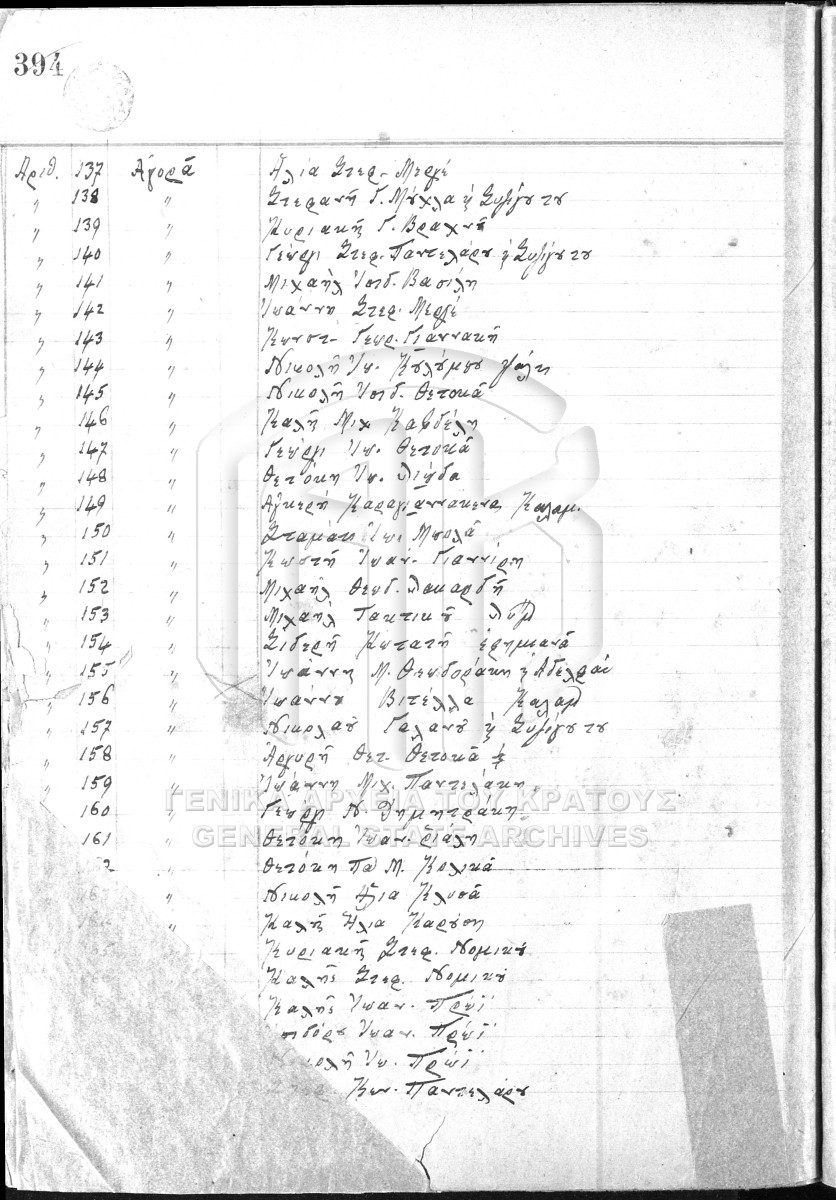 394
Αριθ. 137 Αγορά Ηλία Στεφ. Μεργέ
" 138 " Στεφανή Γ. Μόχλα & Συζύγου του
" 139 " Κυριακή Γ. Βραχνή
" 140 " Γεώργι Στεφ. Παντελάρου & Συζύγου του
" 141 " Μιχαήλ Ισιδ. Βασίλη
" 142 " Ιωάννη Στεφ. Μεργέ
" 143 " Κωνστ. Γεωρ. Γιαννακή
" 144 " Νικολή Ιω.
" 145 " Νικολή Ισιδ. Θετοκά
" 146 " Καλή Μιχ
" 147 " Γεώργι Ιω. Θετοκά
" 148 " Θετόκη Ιω.
" 149 " Καλαμ.
" 150 " Σταμάτη Ιω. Μπολά
" 151 " Κωστή Ιωαν. Γιαννίρη
" 152 " Μιχαήλ Θεοδ. Λακαρδή
" 153 " Μιχαήλ Τακτικού
" 154 " Σιδερή
" 155 " Ιωάννη Μ. Θεοδοράκη & Αδελφαί
" 156 " Ιωάννου Βιτέλλα Καλαμ
" 157 " Νικολάου Γαλανού & Συζύγου του
" 158 " Αργυρή Θετ. Θετοκά ½
" 159 " Ιωάννη Μιχ. Παντελάκη
160 " Γεώργι Ν. Δημητράκη
161 " Θετόκη Ιωαν.
" Θετόκη Πα Μ. Κολικά
" Νικολή Ηλία Κλυσά
" Καλή Ηλία Καρύση
Κυριακή Στεφ. Νομικού
Καλής Στεφ. Νομικού
Καλής Ιωαν. Πρώϊ
Ιωαν. Πρώϊ
Ιω. Πρώϊ
Κων. Παντελάρου
ΓΕΝΙΚΑ ΑΡΧΕΙΑ ΤΟΥ ΚΡΑΤΟΥΣ
GENERAL STATE ARCHIVES